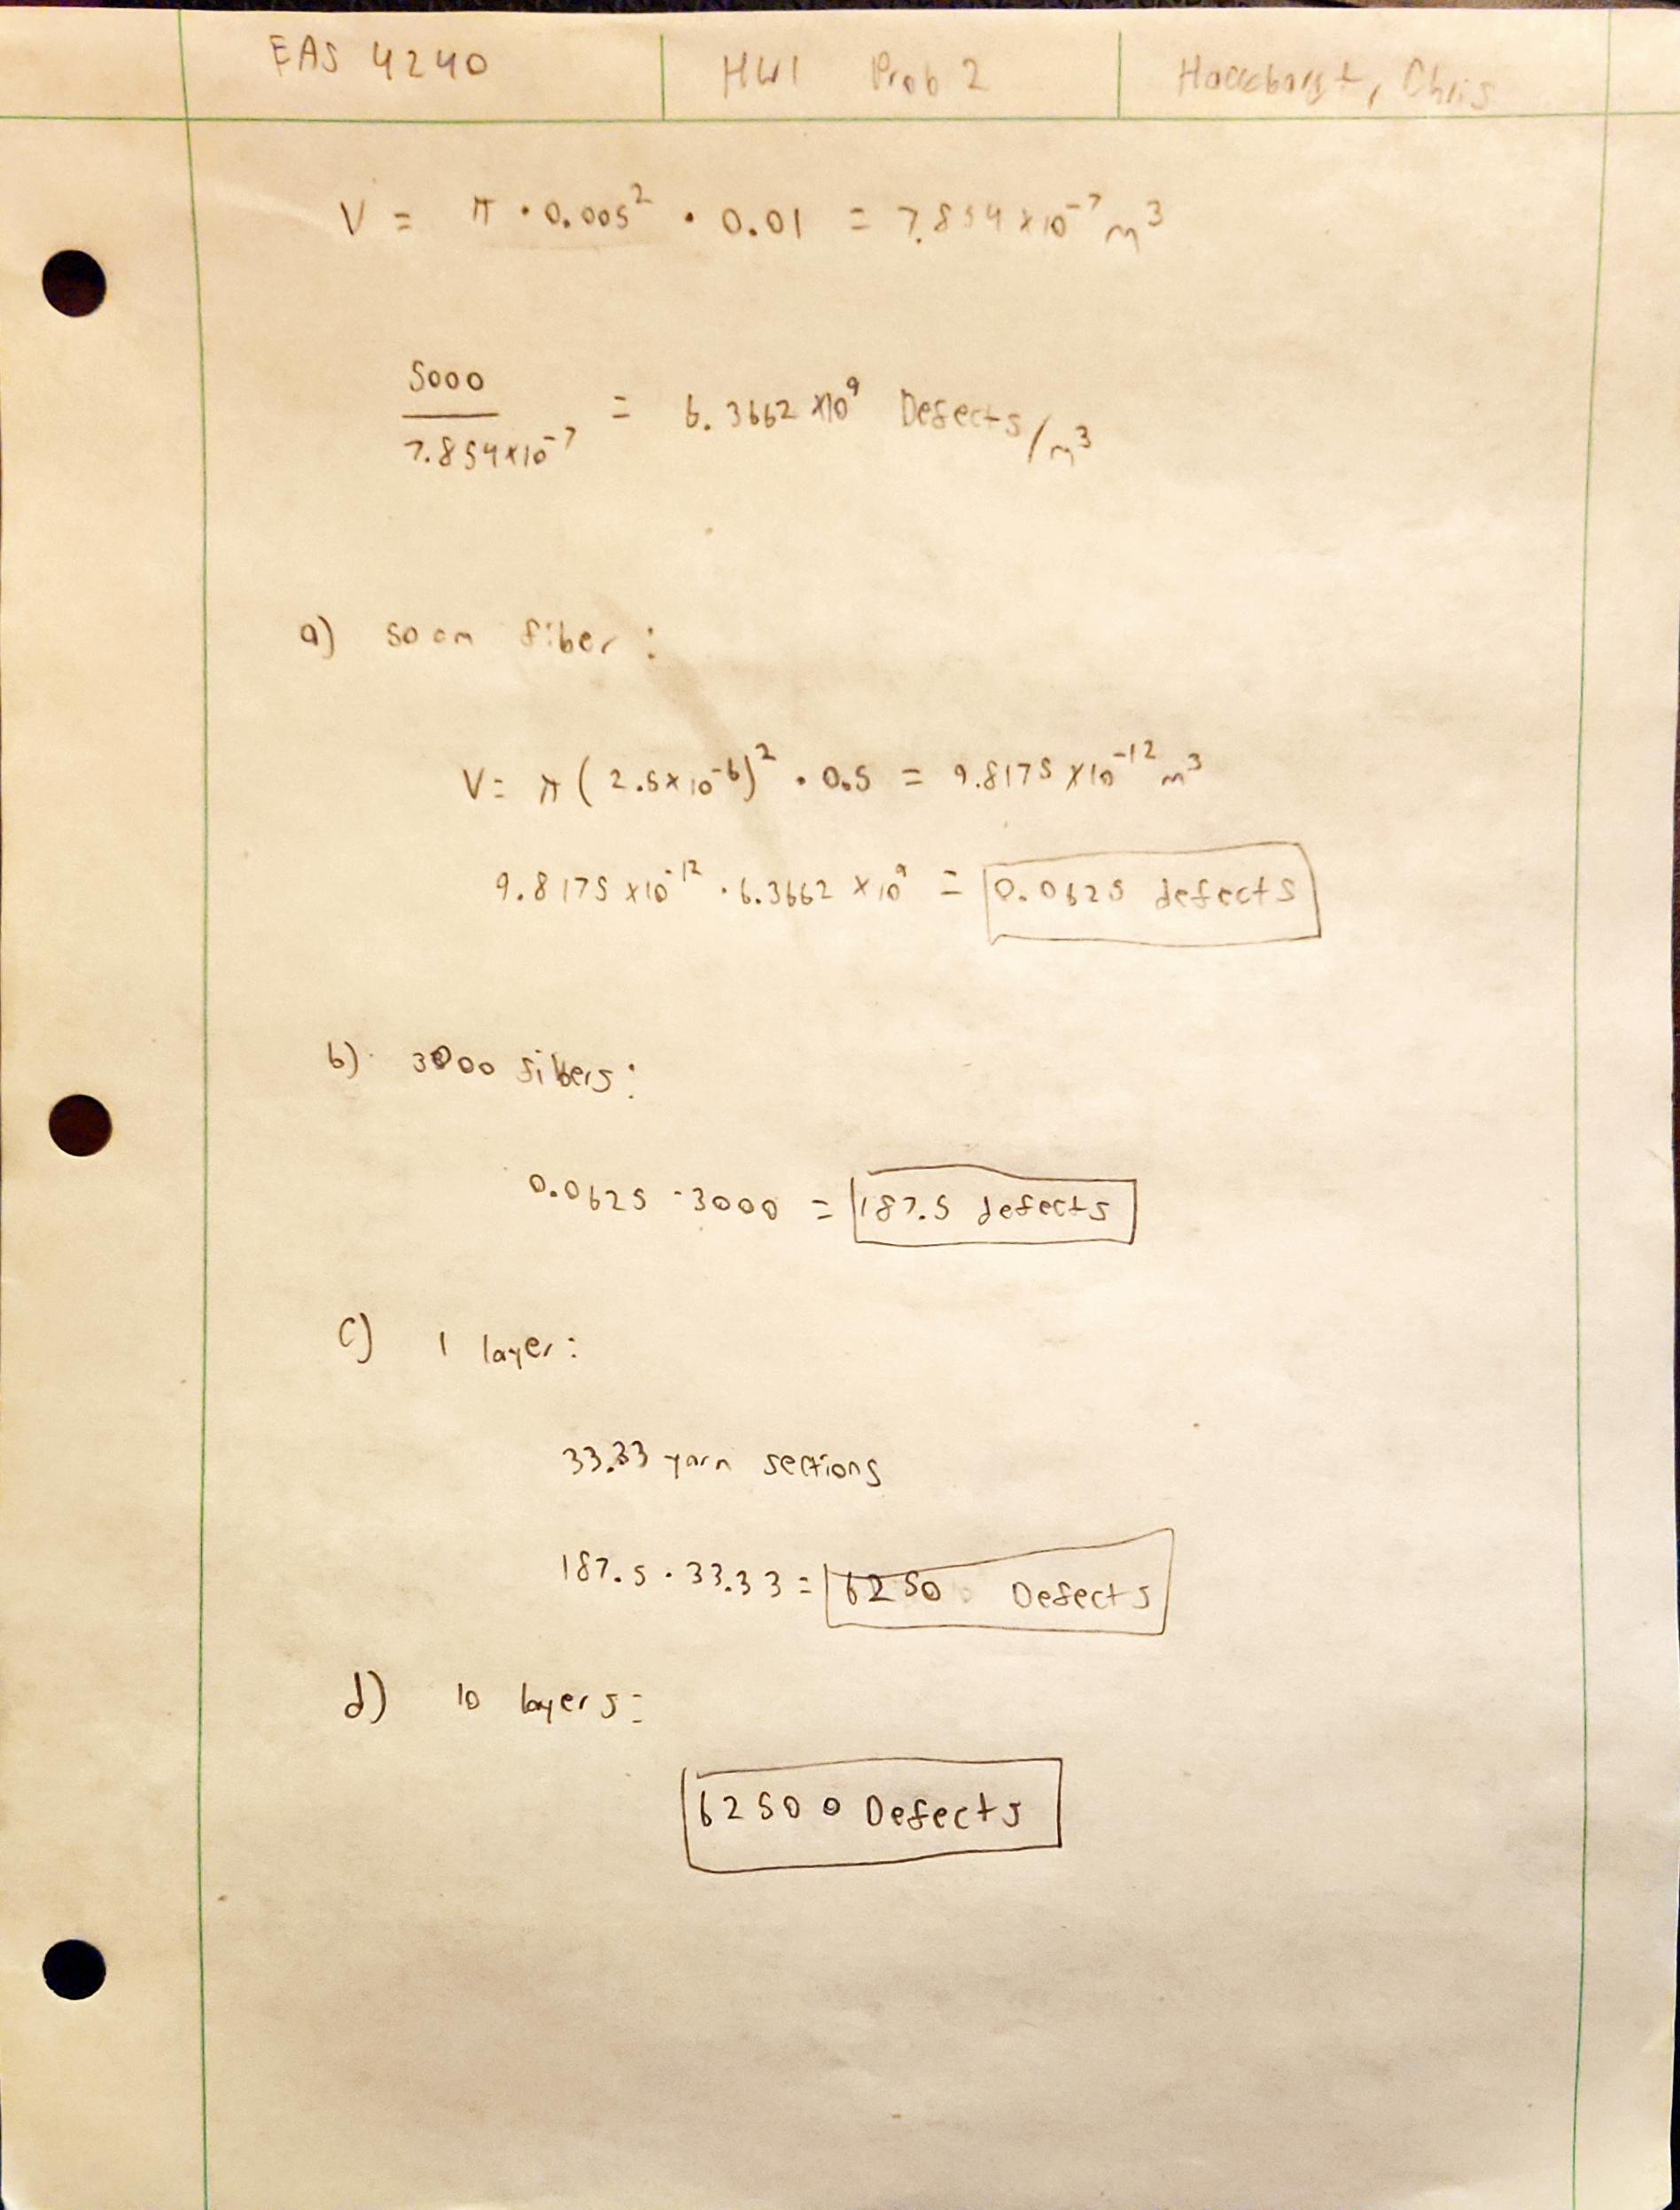 EAS 4240 HW1 Prob 2 Chris
V = π · 0.005² · 0.01 = 7.854 x10⁻⁷ m³
5000
7.854x10⁻⁷ = 6.3662 x10⁹ Defects/m³
a) 50 cm fiber:
V= π ( 2.5x10⁻⁶)² · 0.5 = 9.8175 x10⁻¹² m³
9.8175 x10⁻¹² · 6.3662 x10⁹ = 0.0625 defects
b) 3000 fibers:
0.0625 · 3000 = 187.5 defects
c) 1 layer:
33.33 yarn sections
187.5 · 33.33 = 6250 Defects
d) 10 layers:
62500 Defects